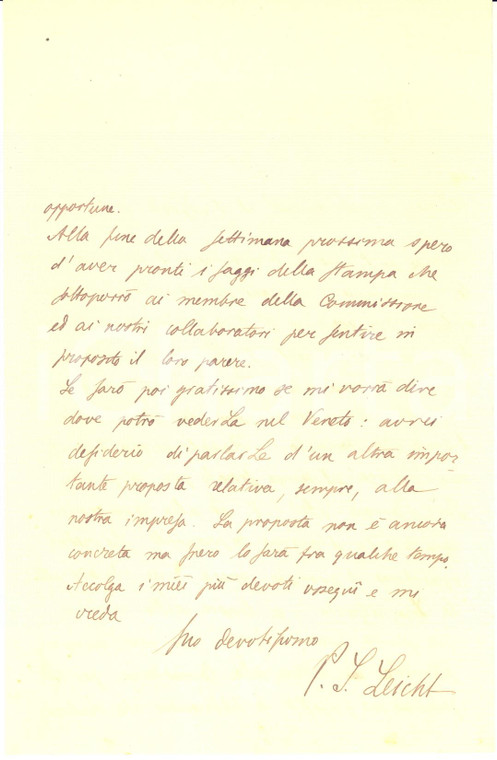 opportune.
Alla fine della settimana prossima spero
d'aver pronti i saggi della stampa che
sottoporrò ai membre della Commissione
ed ai nostri collaboratori per sentire in
proposito il loro parere.
Le sarò poi gratissimo se mi vorrà dire
dove potrò vederLa nel Veneto: avrei
desiderio di parlarLe d'un altra impor-
tante proposta relativa, sempre, alla
nostra impresa. La proposta non è ancora
concreta ma spero lo sarà fra qualche tempo.
Accolga i miei più devoti ossequî e mi
creda
Suo devotissimo
P. S. Leicht